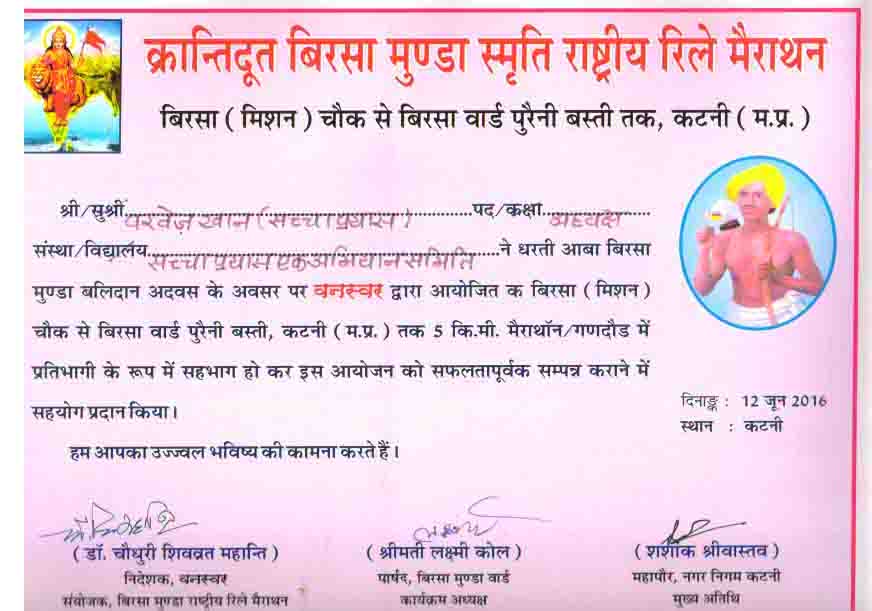 क्रान्तिदूत बिरसा मुण्डा स्मृति राष्ट्रीय रिले मैराथन
बिरसा ( मिशन ) चौक से बिरसा वार्ड पुरैनी बस्ती तक, कटनी ( म.प्र. )
श्री/सुश्री परवेज़ खान (सच्चा प्रयास) पद/कक्षा अध्यक्ष
संस्था/विद्यालय सच्चा प्रयास एक अभियान समिति ने धरती आबा बिरसा
मुण्डा बलिदान अदवस के अवसर पर वनस्वर द्वारा आयोजित क बिरसा ( मिशन )
चौक से बिरसा वार्ड पुरैनी बस्ती, कटनी ( म.प्र. ) तक 5 कि.मी. मैराथॉन/गणदौड में
प्रतिभागी के रूप में सहभाग हो कर इस आयोजन को सफलतापूर्वक सम्पन्न कराने में
सहयोग प्रदान किया।
दिनाङ्क : 12 जून 2016
स्थान : कटनी
हम आपका उज्ज्वल भविष्य की कामना करते हैं।
( डॉ. चौधुरी शिवव्रत महान्ति )
निदेशक, वनस्वर
संयोजक, बिरसा मुण्डा राष्ट्रीय रिले मैराथन
( श्रीमती लक्ष्मी कोल )
पार्षद, बिरसा मुण्डा वार्ड
कार्यक्रम अध्यक्ष
( शशांक श्रीवास्तव )
महापौर, नगर निगम कटनी
मुख्य अतिथि